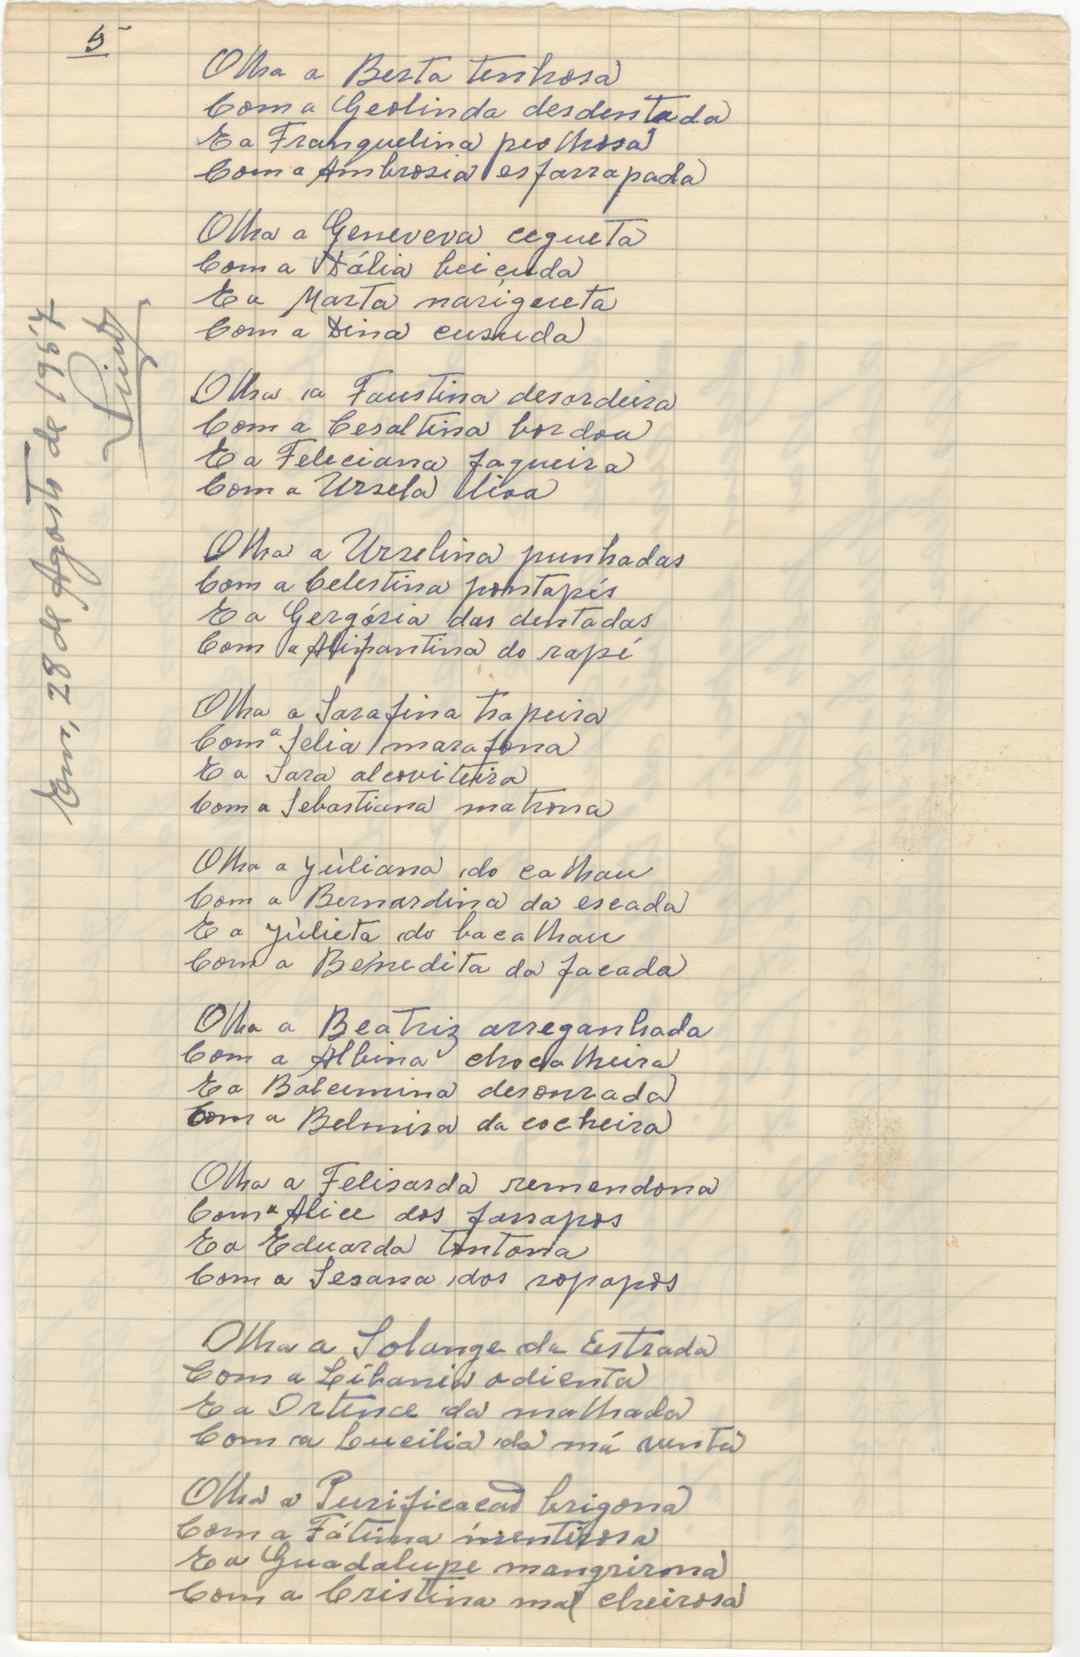 5
Olha a Berta tenhosa
Com a Geolinda desdentada
E a Franquelina piolhosa
Com a Ambrosia esfarrapada
Olha a Geneveva cegueta
Com a Dália beicuda
E a Marta narigueta
Com a Dina cusuda
Olha a Faustina desordeira
Com a Cesaltina bordoa
E a Feleciana faqueira
Com a Ursela
Olha a Urselina punhadas
Com a Celestina pontapés
E a Gergória das dentadas
Com a Alifantina do rapé
Olha a Sarafina trapeira
Com aSelia marafona
E a Sara alcoviteira
Com a Sebastiana matrona
Olha a Júliana do calhau
Com a Bernardina da escada
E a Júlieta do bacalhau
Com a Benedita da facada
Olha a Beatriz arreganhada
Com a Albina chocalheira
E a Balcemina desonrada
Com a Belmira da cocheira
Olha a Felisarda remendona
Com a Alice dos farrapos
E a Eduarda tontona
Com a Sesana dos sopapos
Olha a Solange da Estrada
Com a Libania odienta
E a Ortence da malhada
Com a Lucilia da má venta
Olha a Purificacao brigona
Com a Fátima mentirosa
E a Guadalupe
Com a Cristina mal cheirosa
Em, 28 de Agosto de 1957